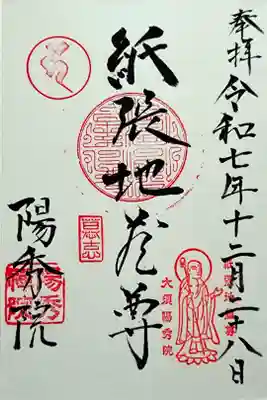 奉拝 令和七年十二月二十八日
紙張地蔵尊
大須陽秀院
陽秀院